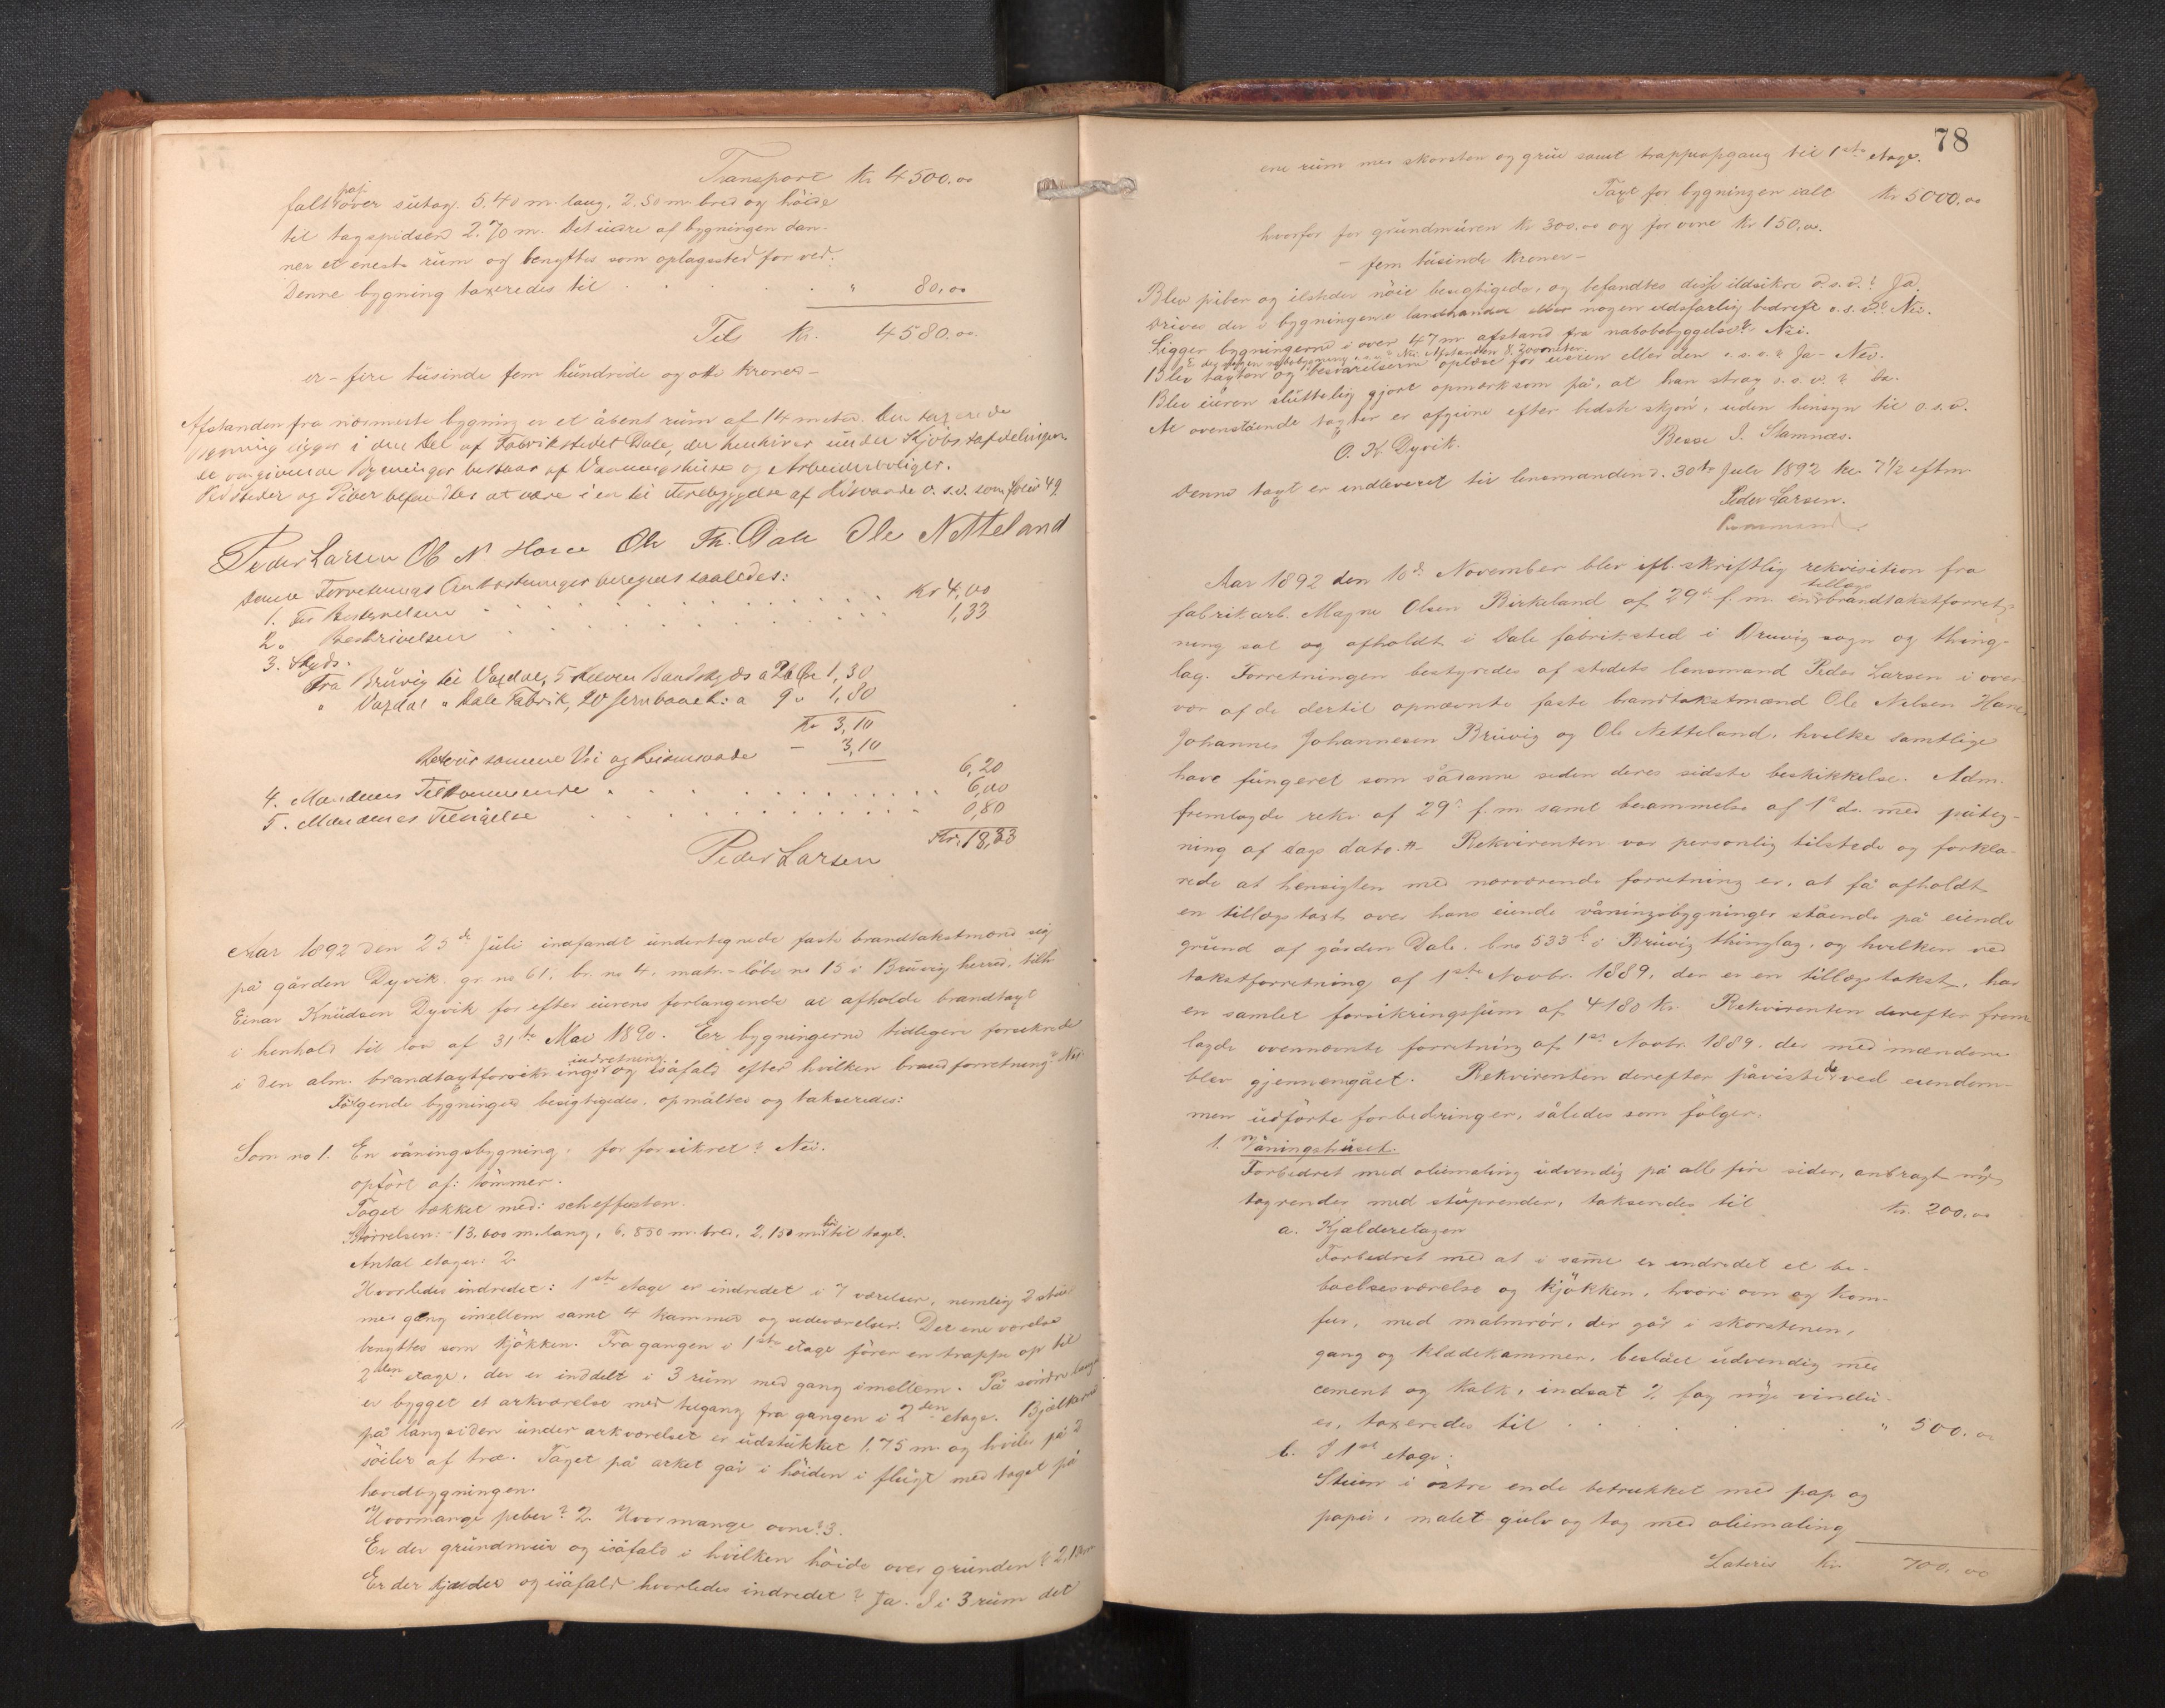 Transport Kr 4500.00
falt pap over sutag. 5.40 m. lang, 2.80 m. bred og höide
til tagspidsen 2.70 m. Det indre af bygningen dan-
ner et eneste rum og benyttes som oplagssted for ved.
Denne bygning taxeredes til . . . . . " 80.00
Tils Kr. 4580.00
er - fire tusinde fem hundrede og otti kroner -
Afstanden fra nærmeste bygning er et åbent rum af 14 meter. Den taxerede
bygning ligger i den Del af Fabrikstedet Dale, der henhører under Skjöbstafdelingen
de omgivende Bygninger bestaar af Vaaningshuse og Arbeiderboliger.
Ildsteder og Piber befandtes at være i en til Forebyggelse af Ildsvaade o.s.v. som folio 49.
Peder Larsen Ole N Hane Ole Th. Dale Ole Netteland
Denne Forretnings Omkostninger beregnes saaledes:
1. For Bestyrelsen . . . . . . . Kr 4,00
2. " Beskrivelsen . . . . . . . 1,33
3. Skyds.
Fra Brüvig til Vaxdal, 5 Kilom Baadskyds a 26 Öre 1,30
" Vaxdal " Dale Fabrik, 20 Jernbanek: a 9 " 1,80
Kr 3,10
Retur samme Vei og Reisemaade - 3,10
6,20
4. Mændenes Tilkommende . . . . . . . 6,00
5. Mændenes Tilsigelse . . . . . . . 0,80
Kr. 18,33
Peder Larsen
Aar 1892 den 25de Juli indfandt undertegnede faste brandtakstmænd sig
på gården Dyvik gr. no 61, br. no 4, matr.-löbe no 15 i Brüvig herred, tilh
Einar Knudsen Dyvik for efter eierens forlangende at afholde brandtaxt
i henhold til lov af 31te Mai 1890. Er bygningerne tidligere forsikrede
i den alm. brandtaxtforsikringsindretning og isåfald efter hvilken brandforretning? Nei.
Fölgende bygninger besigtigedes, opmåltes og takseredes:
Som no 1. En våningsbygning, för forsikret? Nei.
opfört af: tömmer.
Taget tækket med: scheffersten.
Störrelsen: 13.600 m. lang, 6.850 m. bred, 2.150 m. til taget.
Antal etager: 2.
Hvorledes indredet: 1ste etage er indredet i 7 værelser, nemlig 2 stuer
med gang imellem samt 4 kammer og sideværelser. Det ene værelse
benyttes som kjökken. Fra gangen i 1ste etage förer en trappe op til
2den etage, der er inddelt i 3 rum med gang imellem. På söndre langside
er bygget et arkværelse med tilgang fra gangen i 2den etage. Bjælkerne
på langsiden under arkværelset er udstukket 1.75 m. og hviler på 2
söiler af træ. Taget på arket går i höiden i flugt med taget på
hovedbygningen.
Hvormange piber? 2. Hvormange ovne? 3.
Er der grundmur og isåfald i hvilken höide over grunden?
Er der kjælder og isåfald hvorledes indredet? Ja. I i 3 rum det
78
ene rum med skorsten og grue samt trappeopgang til 1ste etage.
Taxt for bygningen ialt Kr 5000.00
hvorfor for grundmuren Kr 300.00 og for ovne Kr 150.00.
- fem tusinde kroner -
Blev piber og ilsteder nöie besigtigede, og befandtes disse ildsikre o.s.v.? Ja.
Drives der i bygningerne landhandel eller nogen ildsfarlig bedrift o.s.v.? Nei.
Ligger bygningerne i over 47 m afstand fra nabobebyggelse? Nei.
Blev taxten og besvarelserne oplæst for eieren eller den o.s.v.? Ja - Nei.
Blev eieren sluttelig gjort opmærksom på, at han strax o.s.v.? Ja.
At ovenstående taxter er afgivne efter bedste skjön, uden hensyn til o.s.v.
O. K. Dyvik. Besse J. Stamnæs.
Denne taxt er indleveret til lensmanden d. 30te Juli 1892 kl. 7½ eftm
Peder Larsen.
Lensmand.
Aar 1892 den 10de November blev ifl. skriftlig rekvisition fra
fabrikarb. Magne Olsen Birkeland af 29de f. m. en tillægsbrandtakstforret-
ning sat og afholdt i Dale fabriksted i Bruvig sogn og thing-
lag. Forretningen bestyredes af stedets lensmand Peder Larsen i over-
vær af de dertil opnævnte faste brandtakstmænd Ole Nelsen Hane,
Johannes Johannesen Brüvig og Ole Netteland, hvilke samtlige
have fungeret som sådanne siden deres sidste beskikkelse. Adm.
fremlagde rekv. af 29de f. m samt berammelse af 1ste ds. med påteg-
ning af dags dato. - Rekvirenten var personlig tilstede og forkla-
rede at hensigten med nærværende forretning er, at få afholdt
en tillægstaxt over hans eiende våningsbygninger stående på eiende
grund af gården Dale. bno 533 b i Brüvig thinglag, og hvilken ved
takstforretning af 1ste Novbr. 1889, der er en tillægstakst, har
en samlet forsikringssum af 4180 Kr. Rekvirenten derefter frem-
lagde ovennævnte forretning af 1ste Novbr. 1889, der med mændene
blev gjennemgået. Rekvirenten derefter påviste de ved eiendom-
men udförte forbedringer, således som fölger:
1. Våningshuset.
Forbedret med oliemaling udvendig på alle fire sider, anbragt nye
tagrender med stuprender, takseredes til Kr. 200.00
a. Kjælderetagen
Forbedret med at i samme er indredet et be-
boelsesværelse og kjökken, hvori ovn og kom-
fur, med malmrör, der går i skorstenen,
gang og klædekammer, beslået udvendig med
cement og kalk, indsat 2 fag nye vindu-
er, taxeredes til . . . . . " 500.00
b. I 1ste etage:
Stuen i östre ende betrukket med pap og
papir, malet gulv og tag med oliemaling
Lateris Kr. 700,00